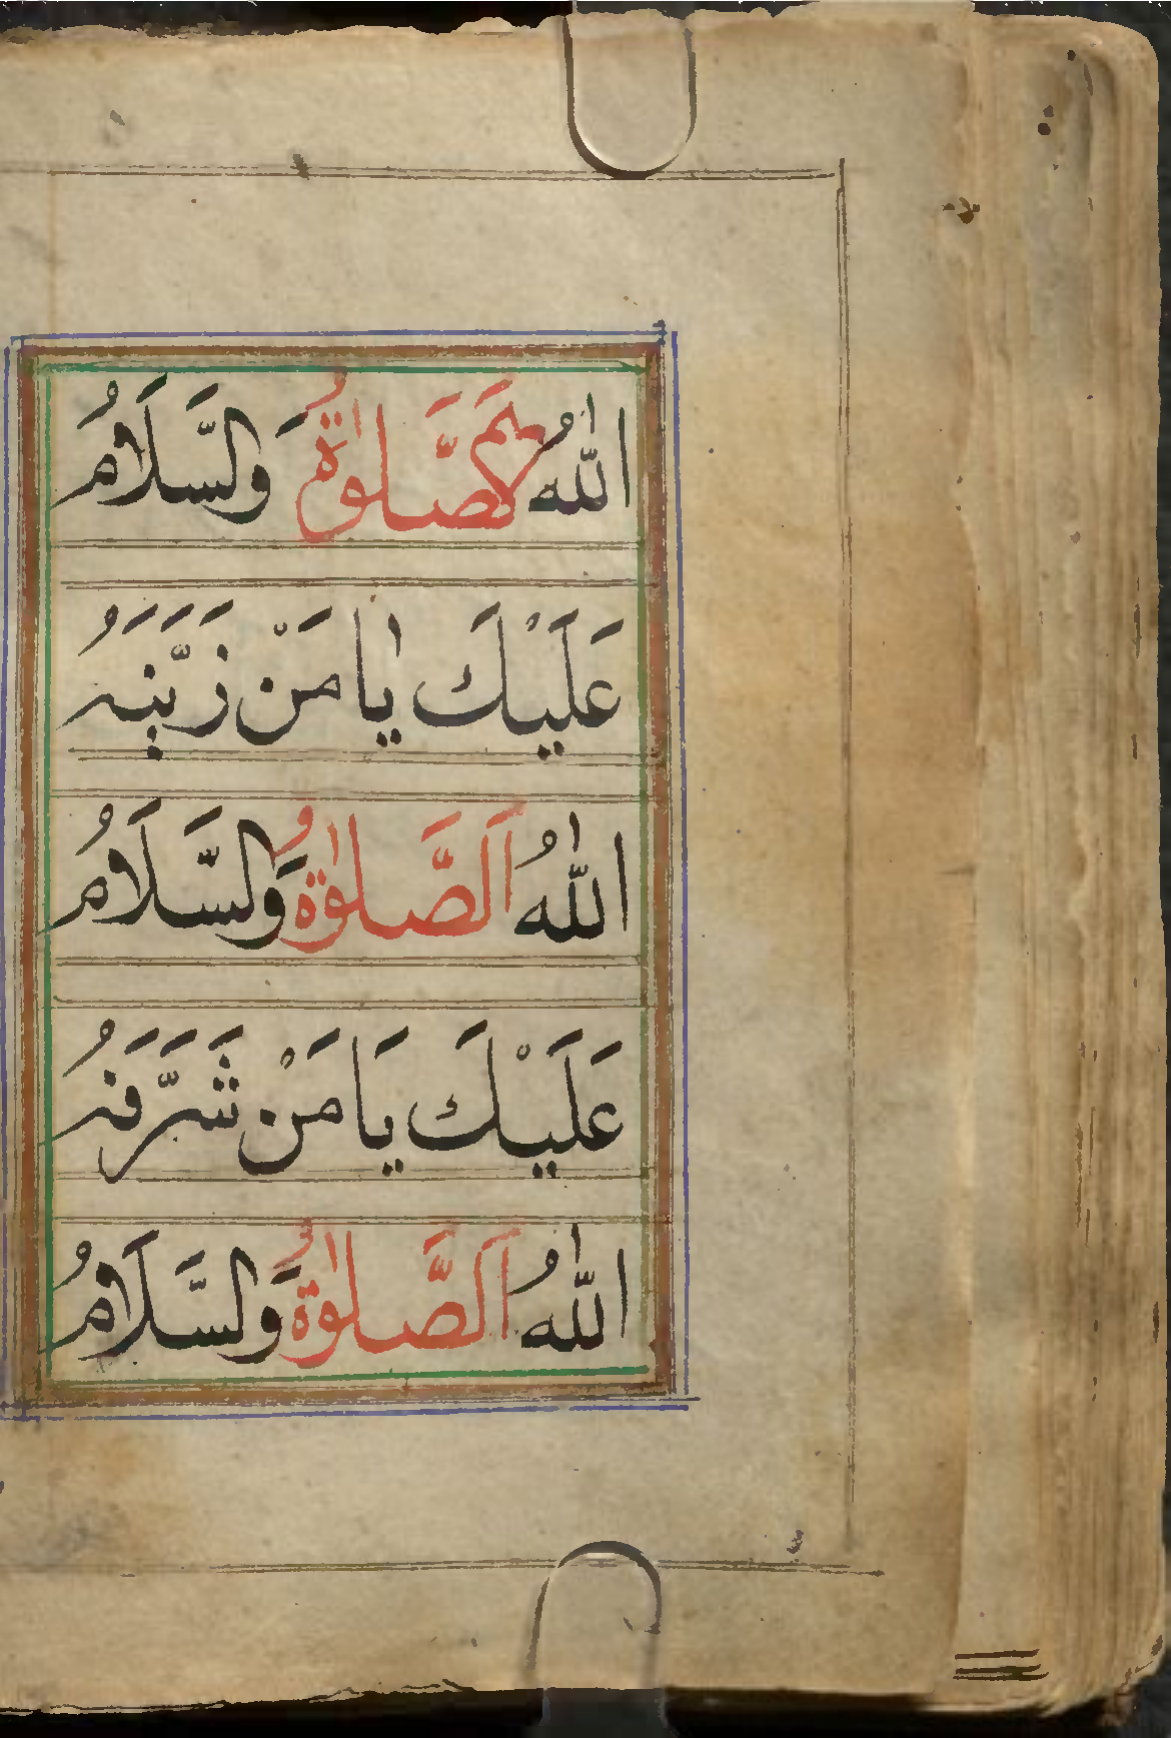 اللّٰهُ اَلصَّلٰوةُ وَالسَّلَامُ
عَلَيْكَ يٰا مَنْ زَيَّنَهُ
اللّٰهُ اَلصَّلٰوةُ وَالسَّلَامُ
عَلَيْكَ يَا مَنْ شَرَّفَهُ
اللّٰهُ اَلصَّلٰوةُ وَالسَّلَامُ